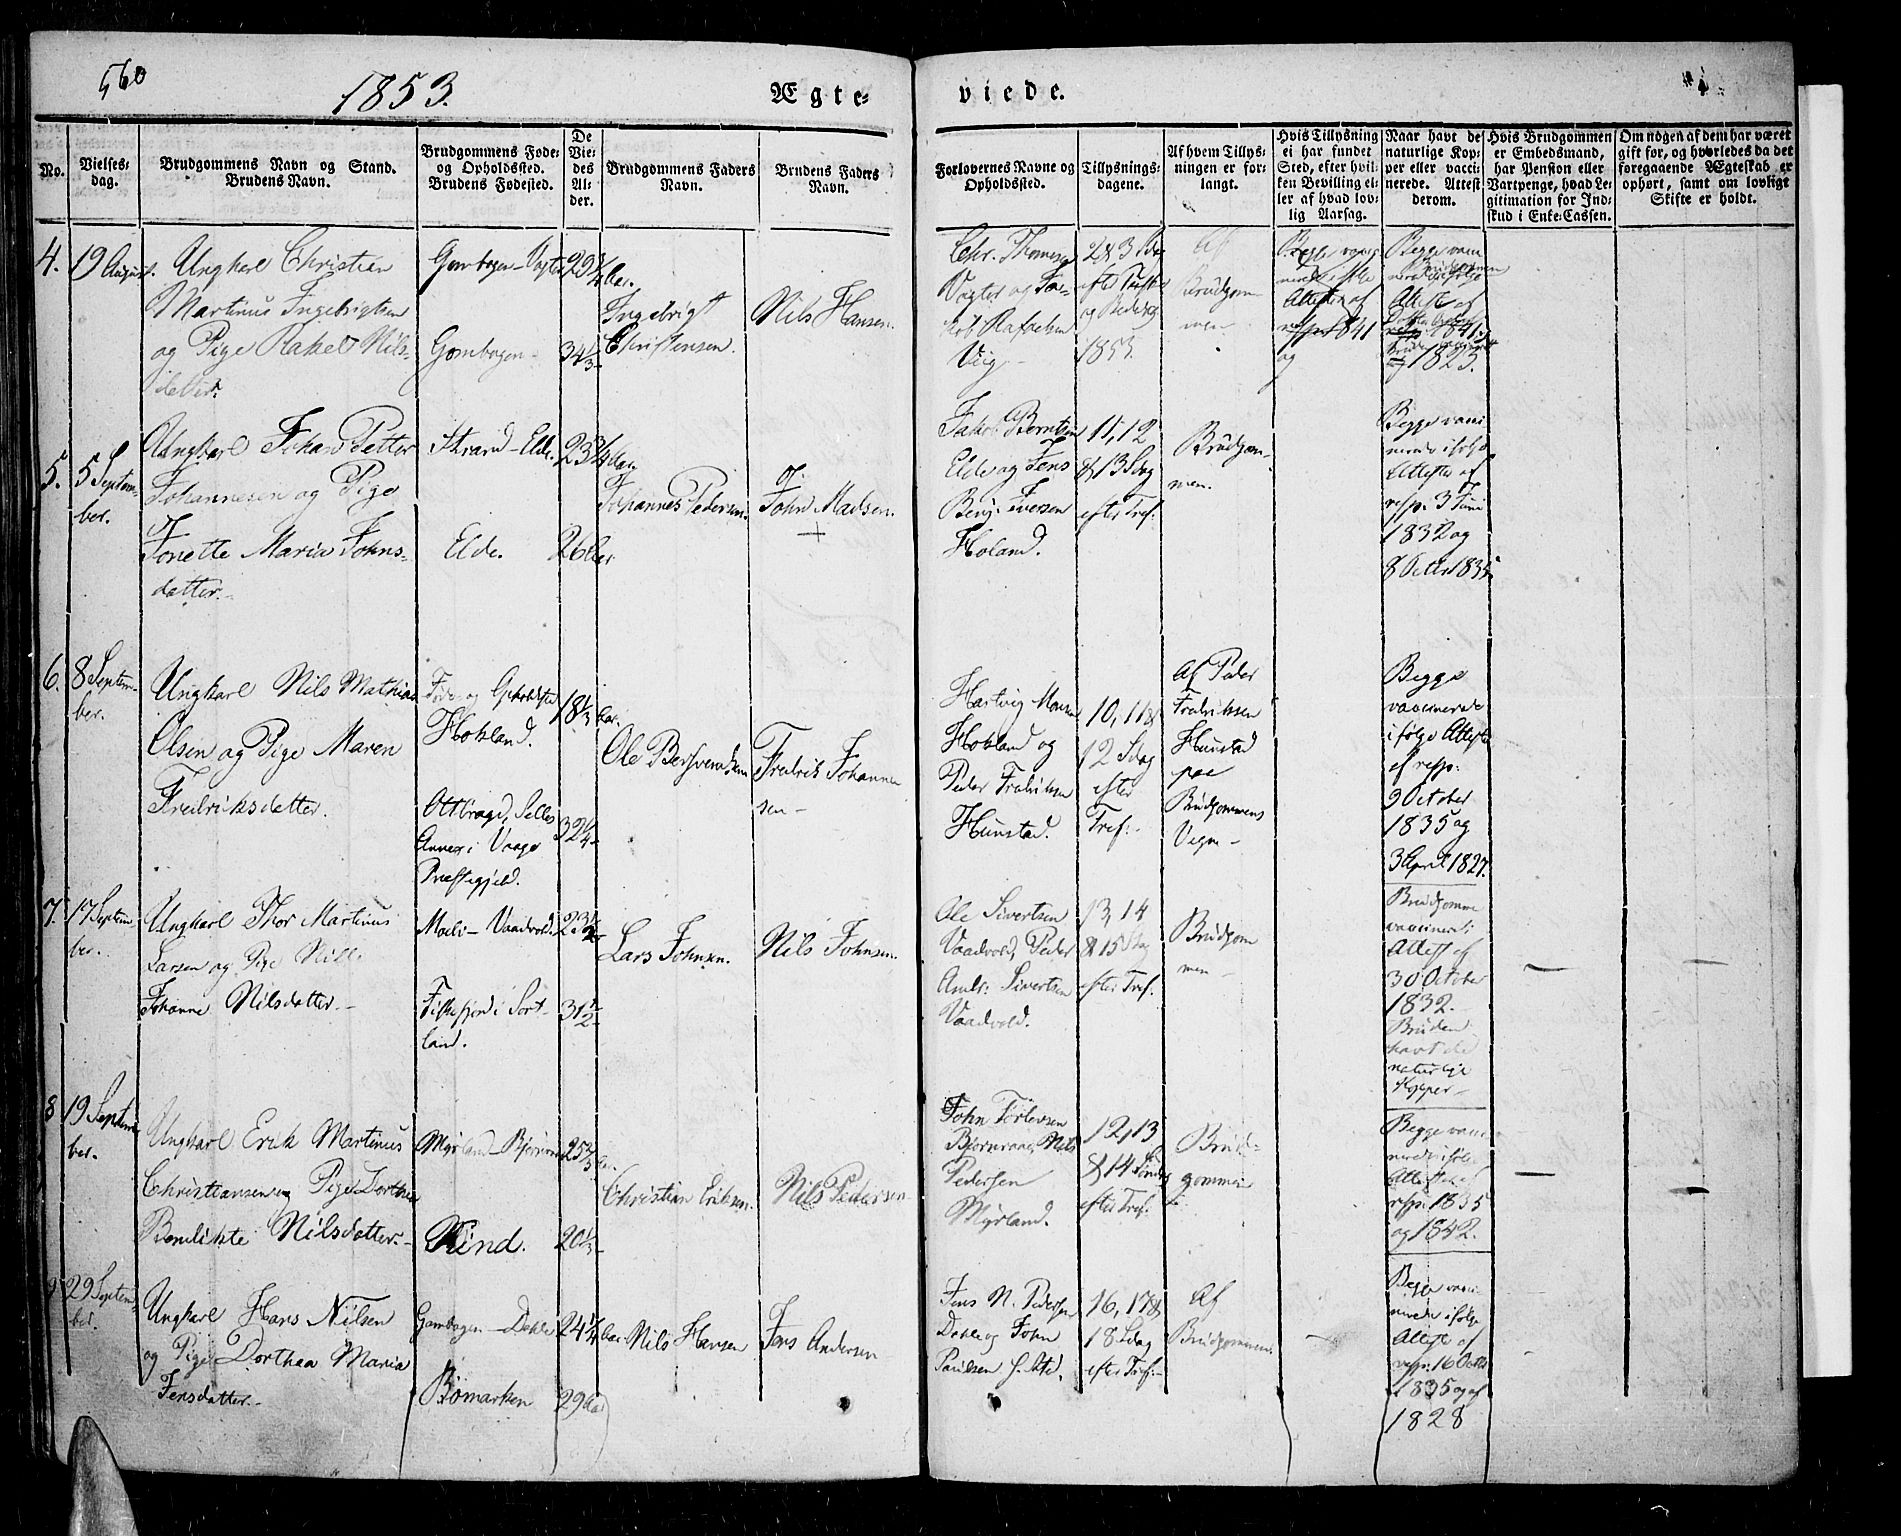 560
1853.
Ægte-
viede.
No.
Vielses-
dag.
Brudgommens Navn og Stand.
Brudens Navn.
Brudgommens Føde-
og Opholdssted.
Brudens Fødested.
De
Vie-
des
Al-
der.
Brudgommens Faders
Navn.
Brudens Faders
Navn.
Forlovernes Navne og
Opholdssted.
Tillysnings-
dagene.
Af hvem Tillys-
ningen er for-
langt.
Hvis Tillysning
ei har fundet
Sted, efter hvil-
ken Bevilling el-
ler af hvad lov-
lig Aarsag.
Naar havt de
naturlige Kop-
per eller vacci-
nerede. Attest
derom.
Hvis Brudgommen
er Embedsmand,
har Pension eller
Vartpenge, hvad Le-
gitimation for Ind-
skud i Enke-Cassen.
Om nogen af dem har været
gift før, og hvorledes da det
foregaaende Ægteskab er
ophørt, samt om lovligt
Skifte er holdt.
4.
19 August.
Ungkarl Christian
Martinus Ingebrigtsen
og Pige Rakel Nils-
datter.
Gombogen - Vogter
Gombogen -
29 3/4 Aar.
34 1/3 -
Ingebrigt
Christensen.
Nils Hansen.
Chr. Thomesen
Vogter og Ja-
kob Rafaelsen
Viig -
2 & 3 Sdag
efter
1853.
Af
Brudgom-
men -
Begge vacci-
nerede ifølge
Attester af
resp. 1841
og
Begge vacci-
nerede ifølge
Attest af
1841 og
1823.
5.
5 Septem-
ber.
Ungkarl Johan Petter
Johannesen og Pige
Jonette Maria Johns-
datter.
Strand - Elde.
Elde.
23 3/4 Aar
26 Aar
Johannes Pedersen.
John Madsen.
+
Jakob Berntsen
Elde og Jens
Benj. Iversen
Holand.
11, 12
& 13 Sdag
efter Tref:
Brudgom-
men.
Begge vacci-
nerede ifølge
Attester af
resp. 3 Juni
1832 og
8 Octbr 1835
6.
8 Septem-
ber.
Ungkarl Nils Mathias
Olsen og Pige Maren
Fredriksdatter.
Føde og Opholdsted
Hokland.
Ottbragd, Selles
Annex i Vaage
Præstegjeld.
18 1/3 Aar.
32 1/4 -
Ole Bersvendsen
Fredrik Johanne-
sen -
Hartvig Monsen
Hokland og
Peder Fredriksen
Hunstad.
10, 11 &
12 Sdag
efter
Tref: -
Af Peder
Fredriksen
Hunstad
paa
Brudgommens
Vegne -
Begge
vaccinerede
ifølge Attester
af resp:
9 October
1835 og
3 April 1827.
7.
17 Septem-
ber.
Ungkarl Thor Martinus
Larsen og Pige Nille
Johanne Nilsdatter. -
Moeli - Vaadvold.
Fiskefjord i Sort-
land.
23 1/2
31 1/2 -
Lars Johnsen.
Nils Johnsen.
Ole Sivertsen
Vaadvold, Peder
Andr: Sivertsen
Vaadvold.
13, 14
& 15 Sdag
efter Tref:
Brudgom
men -
Brudgommen
vaccineret:
Attest af
30 October
1832.
Bruden
havt de
naturlige
Kopper -
8
19 Septem-
ber.
Ungkarl Erik Martinus
Christiansen og Pige Dorthea
Bendikte Nilsdatter. -
Myrland - Bjørnraa
Kind.
25 2/3 Aar.
20 1/3 -
Christian Eriksen.
Nils Pedersen
John Torlevsen
Bjørnraa, Nils
Pedersen
Myrland.
12, 13
& 14 Søndag
efter Tref:
Brud-
gommen
Begge vacci-
nerede ifølge
Attester af
resp. 1835
og 1842.
9
29 Septem-
ber.
Ungkarl Hans Nilsen
og Pige Dorthea Maria
Jensdatter. -
Gombogen - Dahle
Rømarken
24 1/4 Aar
29 Aar
Nils Hansen
Jens Andersen
Jens N. Pedersen
Dahle og John
Paulsen
16, 17 &
18 Sdag
efter Tref: -
Af
Brudgommen.
Begge vacci-
nerede ifølge
Attest af
resp: 16 Octbr
1835 og af
1828